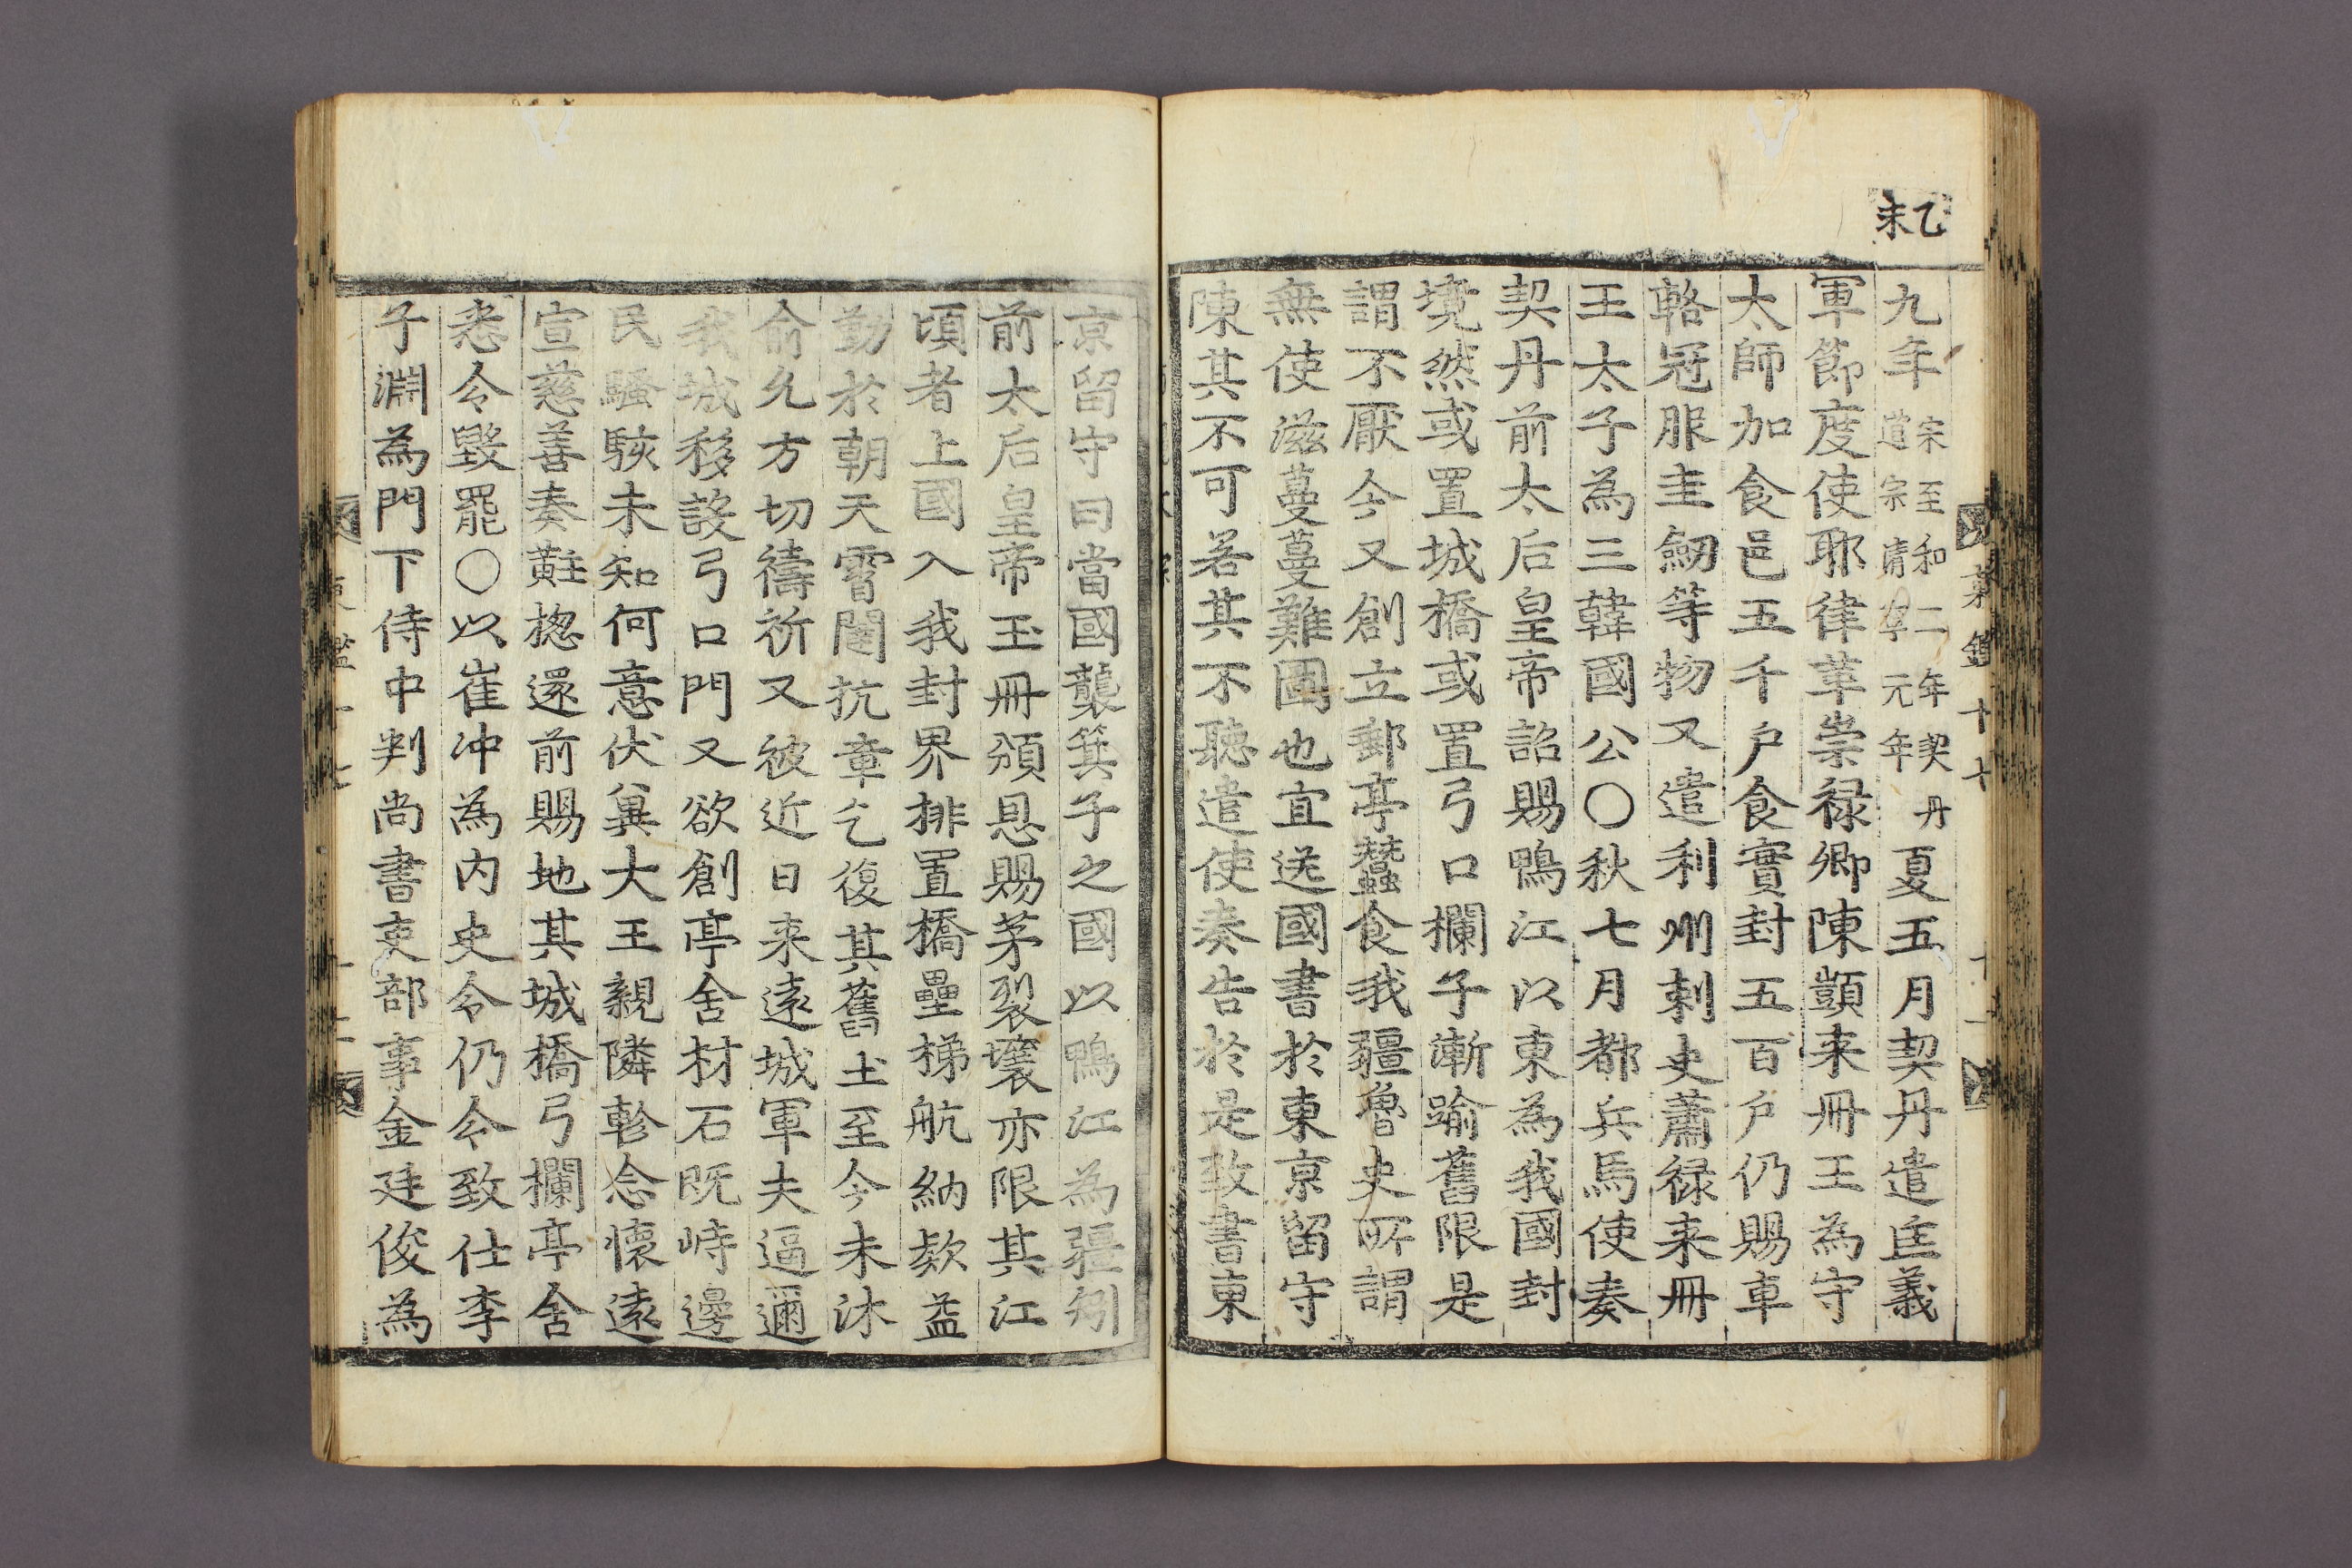 乙未
九年宋至和二年契丹道宗淸寧元年夏五月契丹遣匡義
軍節度使耶律革崇禄卿陳顗来冊王為守
太師加食邑五千户食實封五百户仍賜車
輅冠服圭劒等物又遣利州刺史蕭禄来冊
王太子為三韓國公○秋七月都兵馬使奏
契丹前太后皇帝詔賜鴨江以東為我國封
境然或置城橋或置弓口欄子漸踰舊限是
謂不厭今又創立郵亭蠶食我疆魯史所謂
無使滋蔓蔓難圖也宜送國書於東京留守
陳其不可若其不聽遣使奏告於是致書東
京留守曰當國襲箕子之國以鴨江為疆矧
前太后皇帝玉冊頒恩賜茅裂壤亦限其江
頃者上國入我封界排置橋壘梯航納款益
勤於朝天霄闥抗章乞復其舊土至今未沐
俞允方切禱祈又被近日来遠城軍夫逼邇
我城移設弓口門又欲創亭舍材石既峙邊
民騷駭未知何意伏冀大王親隣軫念懷遠
宣慈善奏黈揔還前賜地其城橋弓欄亭舍
悉令毀罷○以崔冲為内史令仍令致仕李
子淵為門下侍中判尚書吏部事金廷俊為
東鑑十七